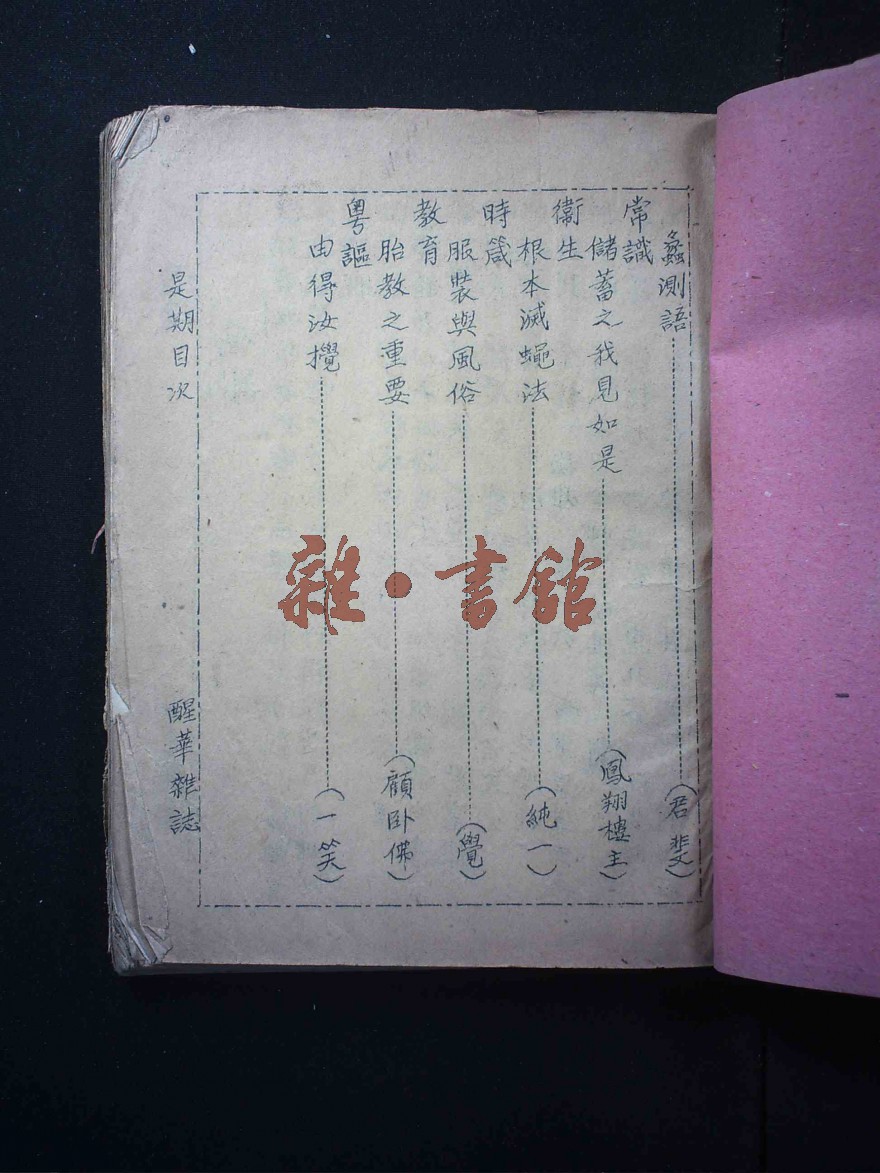 蠡測語（君斐）
常識
儲蓄之我見如是（鳳翔樓主）
衞生
根本滅蠅法（純一）
時箴
服裝與風俗（覺）
教育
胎教之重要（顧卧佛）
粵謳
由得汝攪（一笑）
是期目次
醒華雜誌
雜·書館